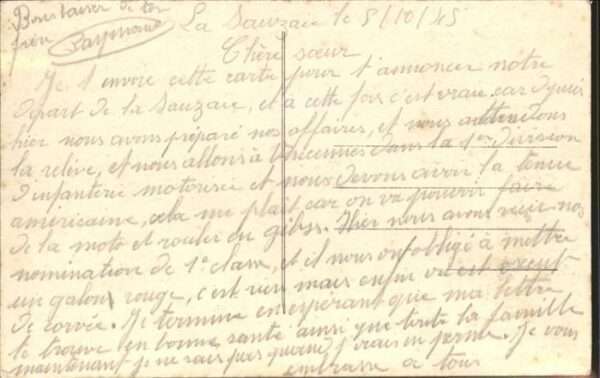 Bons baiser de ton
frère Raymond
La Sauzaie le 8/10/45
Chère sœur
Je t'envoie cette carte pour t'annoncer notre
départ de la Sauzaie, et a cette fois c'est vraie car depuis
hier nous avons préparé nos affaires, et nous attendons
la relève, et nous allons à Vincennes dans la 1er division
d'infanterie motorisée et nous devons avoir la tenue
americaine, cela me plait car on va pouvoir faire
de la moto et rouler en Hier nous avons reçu nos
nomination de 1e classe, et il nous ont obligé à mettre
un galons rouge, c'est rien mais enfin on est exempt
de corvée. Je termine en espérant que ma lettre
te trouve en bonne santé ainsi que toute la famille
maintenant je ne sais pas quand j'irais en perme. Je vous
embrasse a tous